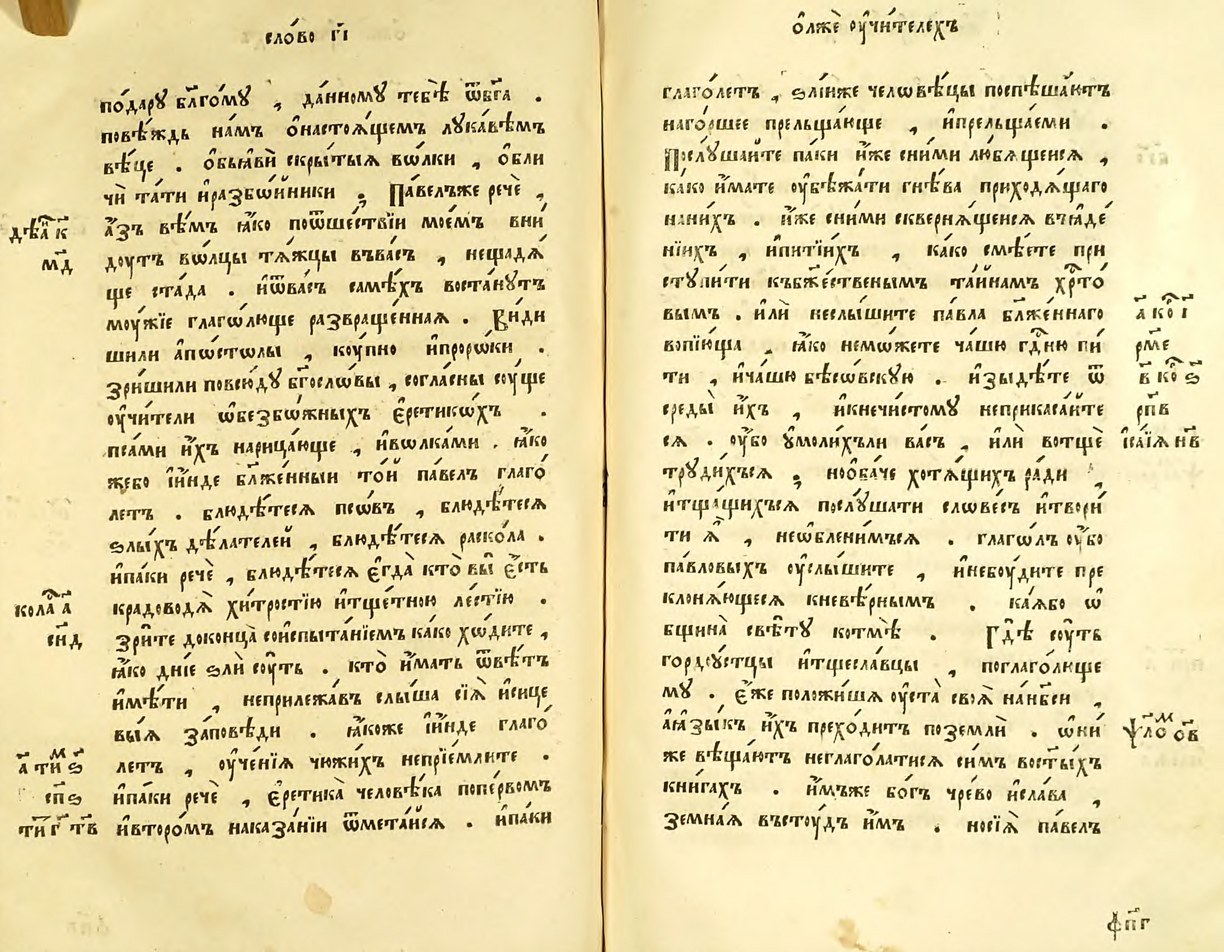 сло́во г҃і
по́дарꙋ бл҃го́мꙋ , да́нномꙋ тебѣ̀ ѿбг҃а .
повѣ́ждь на́мъ ѻ҆настоѧ́щемъ лꙋка́вѣмъ
вѣ́це . ѻ҆бьѧвѝ скры́тыѧ вѡ́лки , ѻ҆бли
чѝ та́ти и҆разбѡ́йники ; Па́велъже речѐ ,
а҆́зъ вѣ́мъ ꙗ҆́ко поѿше́ствїи мое́мъ вни́
доутъ вѡ́лцы тѧ́жцы въва́съ , нещадѧ́
ще ста́да . и҆ѿва́съ самѣ́хъ воста́нꙋтъ
моу́жїе глаго́люще развраще́ннаѧ . Види
шили а҆по́столы , коу́пно и҆проро́ки .
зри́шили повсю́дꙋ бг҃осло́вы , согла́сны соу́ще
оу҆чи́тели ѡ҆безбо́жныхъ є҆ретико́хъ .
пса́ми и҆́хъ нарица́юще , и҆вѡлка́ми . ꙗ҆́ко
жебо і҆и́нде бл҃же́нныи то́й па́велъ глаго́
летъ . блюдѣ́тесѧ псо́въ , блюдѣ́тесѧ
ѕлы́хъ дѣ́лателей , блюдѣ́тесѧ раско́ла .
и҆па́ки речѐ , блюдѣ́тесѧ є҆гда̀ кто̀ вы̀ є҆́сть
крадоводѧ̀ хи́тростїю и҆тще́тною ле́стїю .
зри́те доконца̀ соиспыта́нїемъ ка́ко хо́дите ,
ꙗ҆́ко дні́е ѕлѝ соу́ть . кто̀ и҆́мать ѿвѣ́тъ
и҆мѣ́ти , неприлежа́въ слы́ша сїѧ̀ и҆сице
вы́ѧ за́повѣди . ꙗ҆́коже і҆и́нде глаго́
летъ , оу҆че́нїѧ чюжи́хъ непрїе́млите .
и҆па́ки речѐ , є҆ретика̀ человѣ́ка попе́рвомъ
и҆второ́мъ наказа́нїи ѿмета́исѧ . и҆па́ки
дѣѧ҃ к҃
м҃д
кола а҃
сн҃д
а҃ тим ѕ҃
сп҃ѕ
ти г҃ тв҃
ѻ҆лжѐ оу҆чи́телехъ
глаго́летъ , ѕлі́иже человѣ́цы поспѣша́ютъ
наго́ршее прельща́юще , и҆прельща́еми .
Послꙋ́шайте па́ки и҆́же сни́ми любѧ́щеисѧ ,
ка́ко и҆́мате оу҆бѣжа́ти гнѣ́ва приходѧ́щаго
нани́хъ . и҆́же сни́ми сквернѧ́щеисѧ въꙗде́
нїихъ , и҆питїи́хъ , ка́ко смѣ́ете при
стꙋпи́ти къбж҃е́ственымъ та́йнамъ хр҃то́
вымъ . и҆лѝ неслы́шите па́вла бл҃же́ннаго
вопїю́ща . ꙗ҆́ко немо́жете ча́шю гд҃ню пи́
ти , и҆ча́шю бѣсо́вскꙋю . и҆зыдѣ́те ѿ
среды̀ и҆́хъ , и҆кнечи́стомꙋ неприкаса́йте
сѧ . оу҆́бо ᲂумоли́хъли ва́съ , и҆лѝ вотщѐ
трꙋди́хъсѧ ; ноѻ҆ба́че хотѧ́щихъ ра́ди ,
и҆тща́щихъсѧ послꙋ́шати слове́съ и҆твори́
ти ѧ҆̀ , неѡ҆блени́мъсѧ . глаго́лъ оу҆́бо
па́вловыхъ оу҆слы́шите , и҆небоу́дите пре
клонѧ́ющесѧ кневѣ́рнымъ . ка́ѧбо ѡ҆́
бщина̀ свѣ́тꙋ котмѣ̀ . Гдѣ̀ соу́ть
гордоу́стцы и҆тщесла́вцы , поглаго́лище
мꙋ . є҆́же положи́шѧ оу҆ста̀ своѧ̀ нан҃бси ,
аꙗ҆зы́къ и҆́хъ прехо́дитъ поземлѝ . ѡ҆ни́
же вѣща́ютъ неглаго́латисѧ си́мъ вост҃ы́хъ
кни́гахъ . и҆́мъже бо́гъ чре́во и҆сла́ва ,
земна́ѧ въстоу́дъ и҆́мъ . носїѧ̀ па́велъ
а҃ ко і҃
рм҃е
в҃ ко ѕ҃
рп҃в
і҆са́їѧ н҃в
ѱало́м о҃в
фп҃г